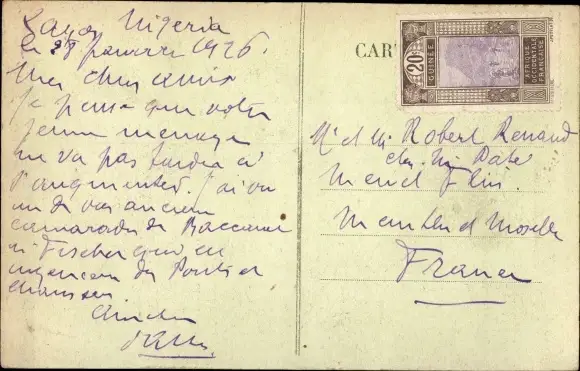 Lagos Nigeria
le 28 janvier 1926.
Mes chers amis
Je pense que votre
jeune menage
ne va pas tarder à
s'augmenter. J'ai vu
un de vos anciens
camarades de Baccarat
Mr Fischer qui est
des Ponts et
chaussées
CAR
20
GUINÉE
AFRIQUE
OCCIDENTALE
FRANÇAISE
Mr et Me Robert Renaud
chez Mr
Meurthe et Moselle
France